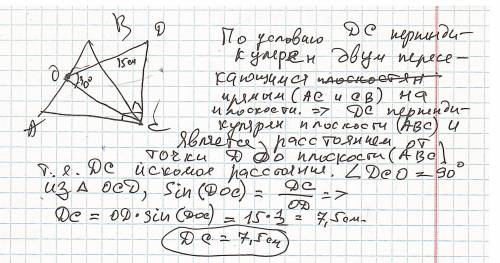 B D
O 15см 30°
A C
По условию DC перпенди-
кулярен двум пересе-
кающимся плоскостям
прямым (AC и CB) на
плоскости. => DC перпенди-
кулярен плоскости (ABC) и
является расстоянием от
точки D до плоскости (ABC)
т.е. DC искомое расстояние. ∠DCO = 90°
из △ OCD, Sin(DOC) = DC/OD =>
DC = OD·sin(DOC) = 15·1/2 = 7,5см.
DC = 7,5см